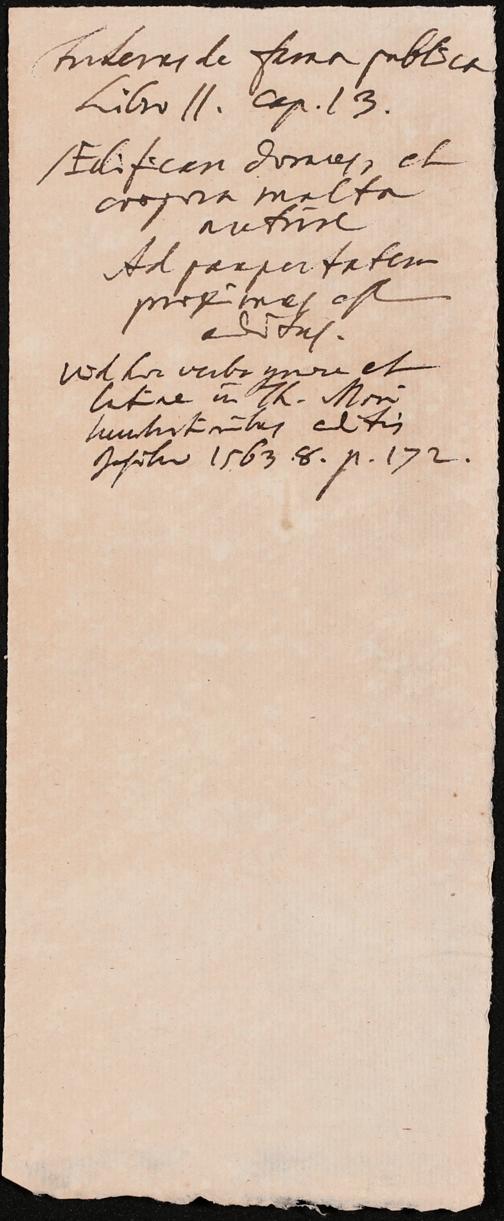 de fama publica
Libro II. Cap. 13.
Ædificare domus, et
corpora multa
nutrire
Ad paupertatem
proximus est
aditus.
vid hoc verba græce et
latine in Th. Mori
lucubrationibus editis
1563 8. p. 172.